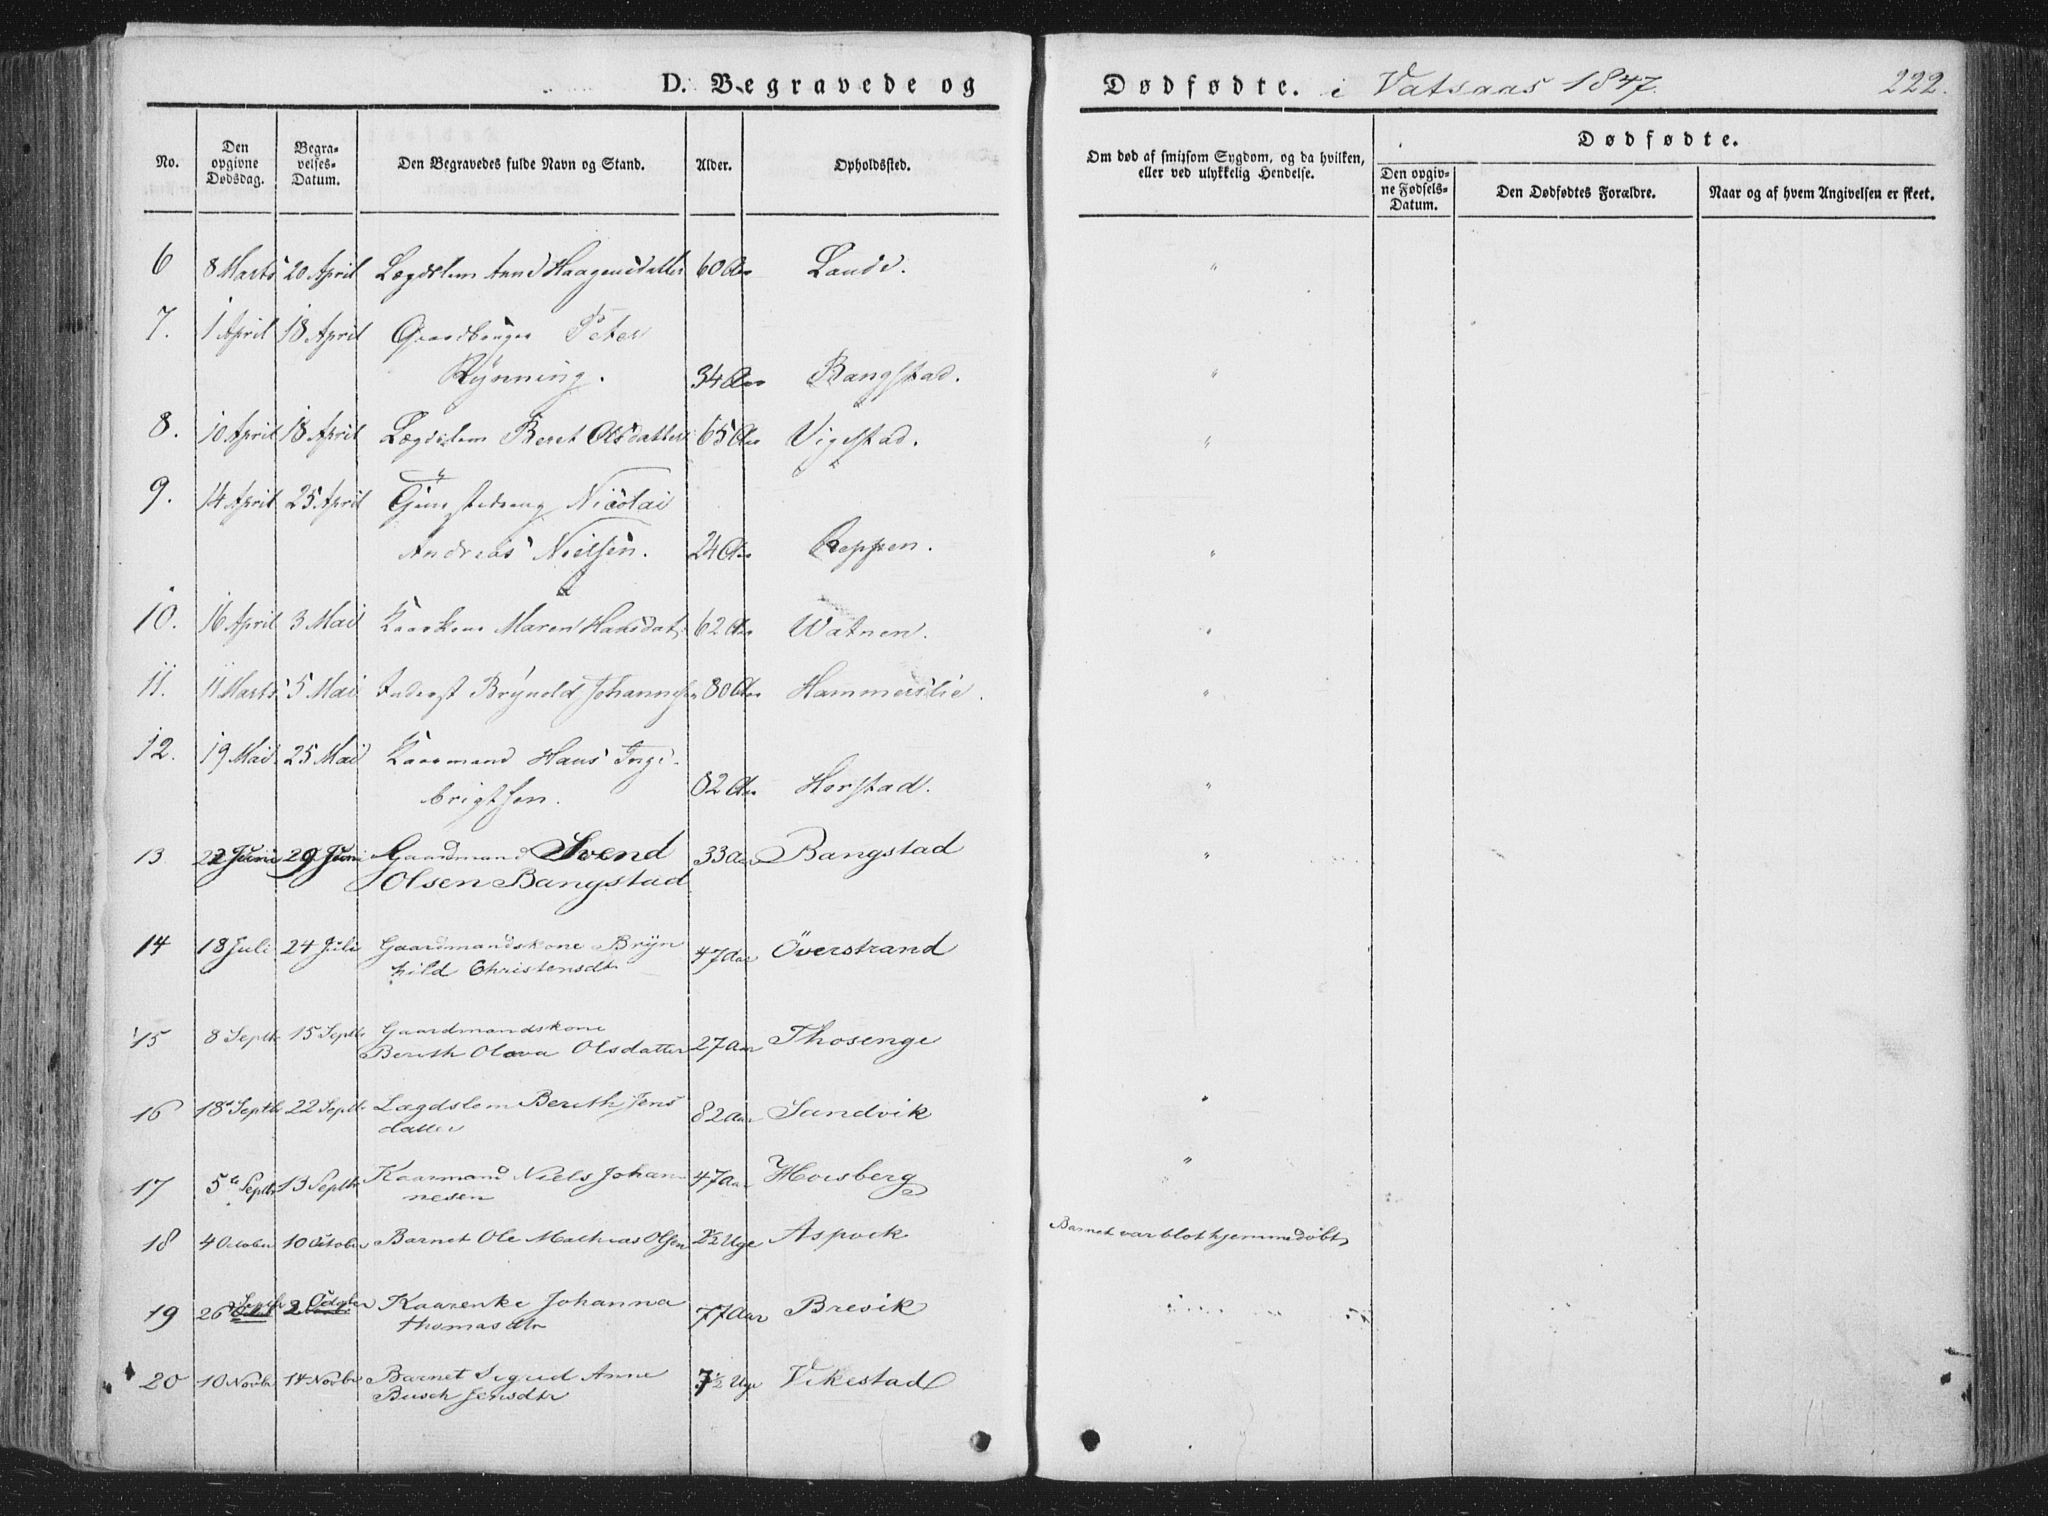 D. Begravede og Dødfødte. i Vatsaas 1847. 222.
Dødfødte.
No. Den opgivne Dødsdag. Begra-velses-Datum. Den Begravedes fulde Navn og Stand. Alder. Opholdssted. Om død af smitsom Sygdom, og da hvilken, eller ved ulykkelig Hendelse. Den opgiv-ne Fødsels-Datum. Den Dødfødtes Forældre. Naar og af hvem Angivelsen er skeet.
6 8 Marts 20 April Lægdslem Anne Haagensdatter 60 Aar Lande. "
7. 1 April 18 April Gaardbruger Peter
Rÿnning. 34 Aar Bangstad. "
8. 10 April 18 April Lægdslem Beret Olsdatter 65 Aar Vigestad. "
9. 14 April 25 April Tjenestedreng Nicolai
Andreas Nielsen. 24 Aar Reppen. "
10. 16 April 3 Mai Kaarkone Maren Hansdat. 62 Aar Watnen. "
11. 11 Marts 5 Mai Inderst Brÿnold Johannesen 80 Aar Hammerslie. "
12. 19 Mai 25 Mai Kaarmand Hans Inge-
brigtsen. 82 Aar Horstad. "
13 22 Juni 29 Juni Gaardmand Svend 33 Aar Bangstad "
Olsen Bangstad
14 18 Juli 24 Juli Gaardmandskone Brÿn
hild Christensdt 47 Aar Överstrand
15 8 Septbr 15 Septbr Gaardmandskone
Berith Olava Olsdatter 27 Aar Thosenge
16 18 Septbr 22 Septbr Lægdslem Berith Jens 82 Aar Sandvik "
datter
17 5te Septbr 13 Septbr Kaarmand Niels Johan 47 Aar Horsberg "
nesen
18 4 October 10 October Barnet Ole Mathias Olsen 2½ Uge Aspvik Barnet var blot hjemmedøbt
19 26 Septbr 2 October Kaarenke Johanna 77 Aar Brevik
Thomasdtr
20 10 Novbr 14 Novbr Barnet Sigrid Anne 7½ Uge Vikestad
Busch Jensdtr